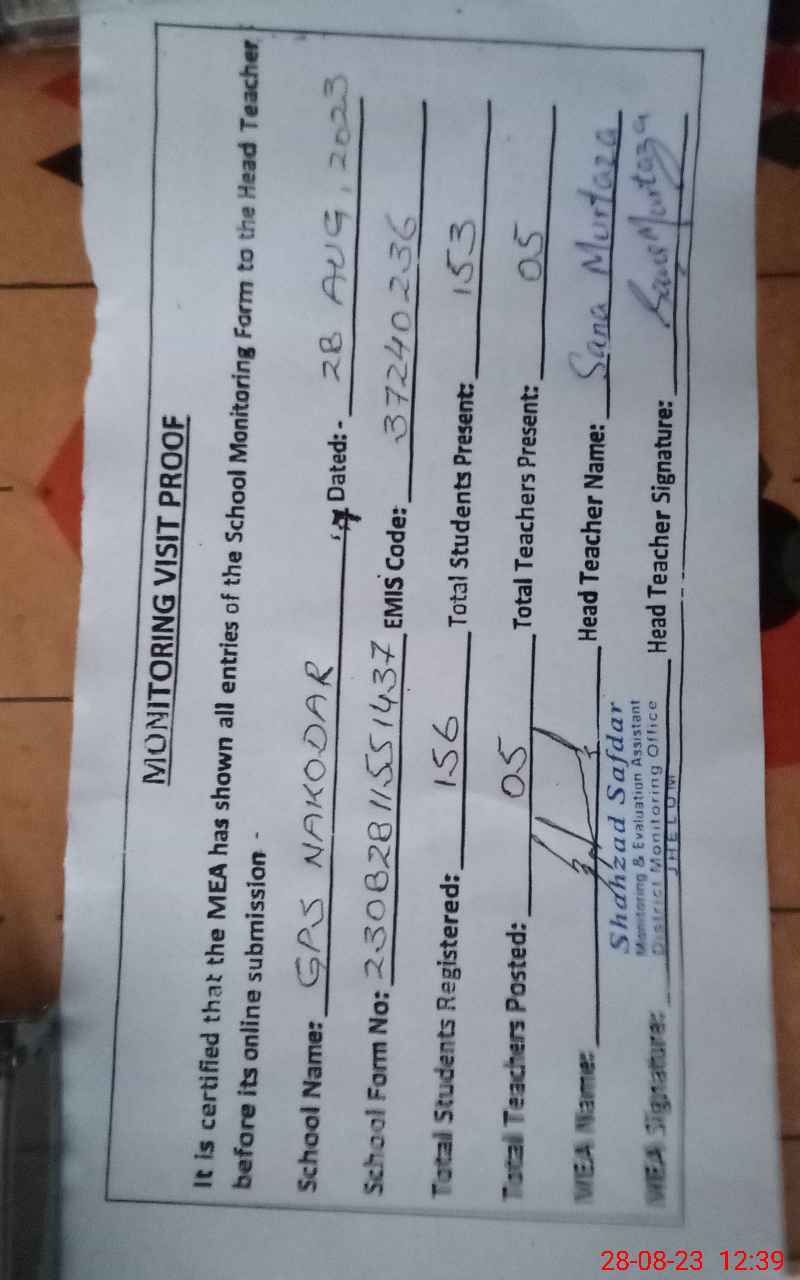 MONITORING VISIT PROOF
It is certified that the MEA has shown all entries of the School Monitoring Form to the Head Teacher
before its online submission -
School Name: GPS NAKODAR Dated:- 28 AUG, 2023
School Form No: 230828115551437 EMIS Code: 37240236
Total Students Registered: 156 Total Students Present: 153
Total Teachers Posted: 05 Total Teachers Present: 05
MEA Name: Head Teacher Name: Sana Murtaza
Shahzad Safdar
Monitoring & Evaluation Assistant
District Monitoring Office
JHELUM
MEA Signature: Head Teacher Signature: Sana Murtaza
28-08-23 12:39